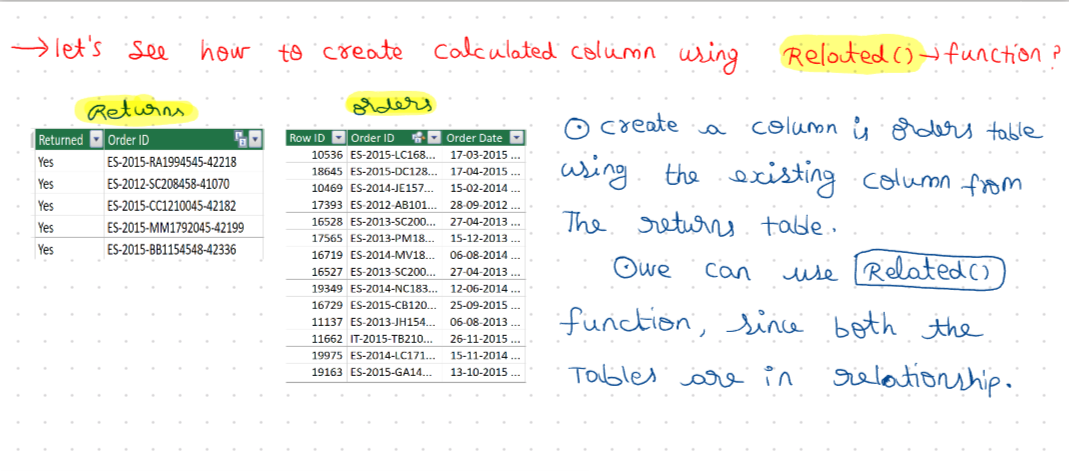 → let's see how to create calculated column using Related() → function?
Returns
Returned Order ID
Yes ES-2015-RA1994545-42218
Yes ES-2012-SC208458-41070
Yes ES-2015-CC1210045-42182
Yes ES-2015-MM1792045-42199
Yes ES-2015-BB1154548-42336
orders
Row ID Order ID Order Date
10536 ES-2015-LC168... 17-03-2015 ...
18645 ES-2015-DC128... 17-04-2015 ...
10469 ES-2014-JE157... 15-02-2014 ...
17393 ES-2012-AB101... 28-09-2012 ...
16528 ES-2013-SC200... 27-04-2013 ...
17565 ES-2013-PM18... 15-12-2013 ...
16719 ES-2014-MV18... 06-08-2014 ...
16527 ES-2013-SC200... 27-04-2013 ...
19349 ES-2014-NC183... 12-06-2014 ...
16729 ES-2015-CB120... 25-09-2015 ...
11137 ES-2013-JH154... 06-08-2013 ...
11662 IT-2015-TB210... 26-11-2015 ...
19975 ES-2014-LC171... 15-11-2014 ...
19163 ES-2015-GA14... 13-10-2015 ...
⊙ create a column is orders table
using the existing column from
The returns table.
⊙ we can use Related()
function, since both the
Tables are in relationship.